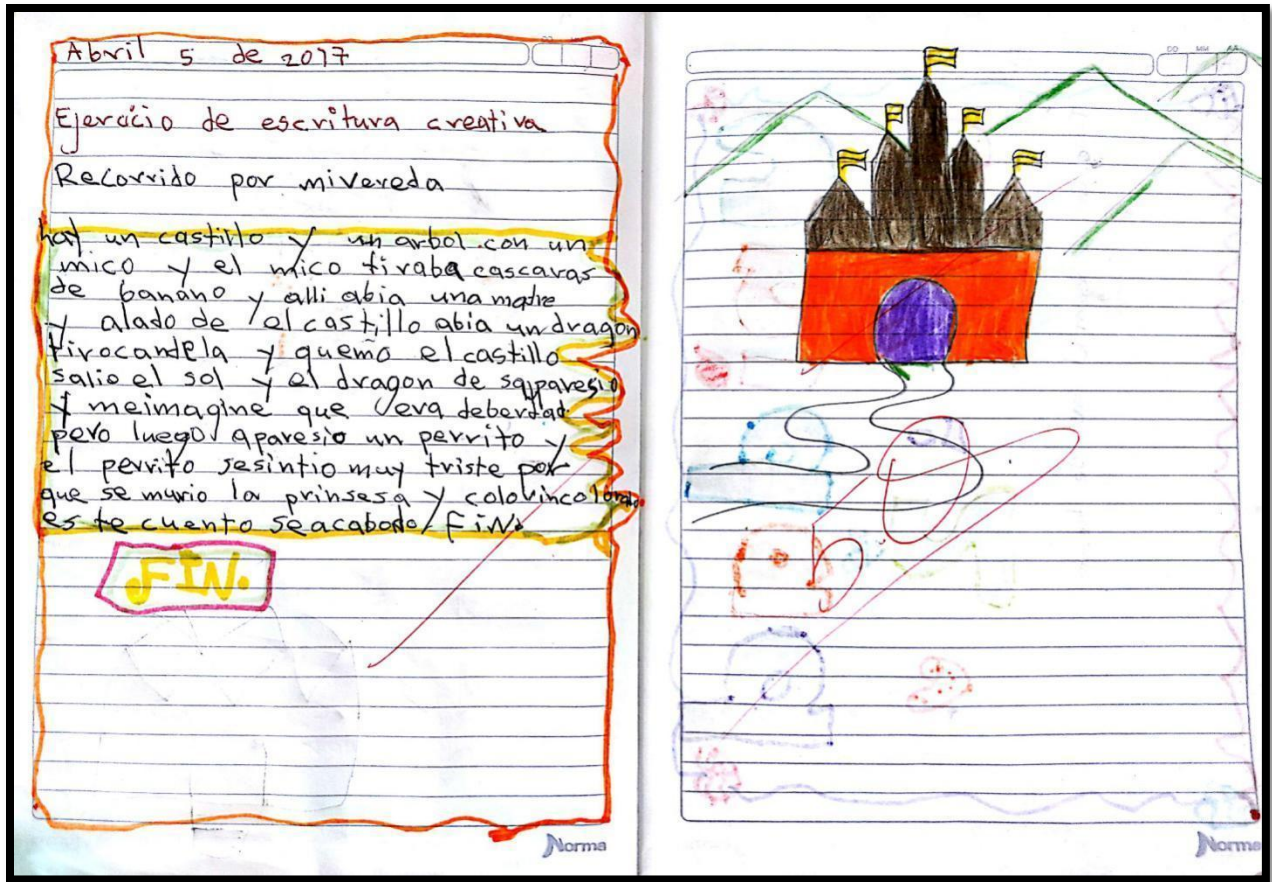 Abril 5 de 2017
Ejercicio de escritura creativa
Recorrido por mivereda
hay un castillo y un arbol con un
mico y el mico tiraba cascaras
de banano y alli abia una madre
y alado de el castillo abia un dragon
tirocandela y quemo el castillo
salio el sol y el dragon de sapparesio
y meimagine que era deberdad
pero luego aparesio un perrito y
el perrito sesintio muy triste por
que se murio la prinsesa y colorincolorado
es te cuento seacabado FiN.
FIN.
Norma
DD MM AA
Norma